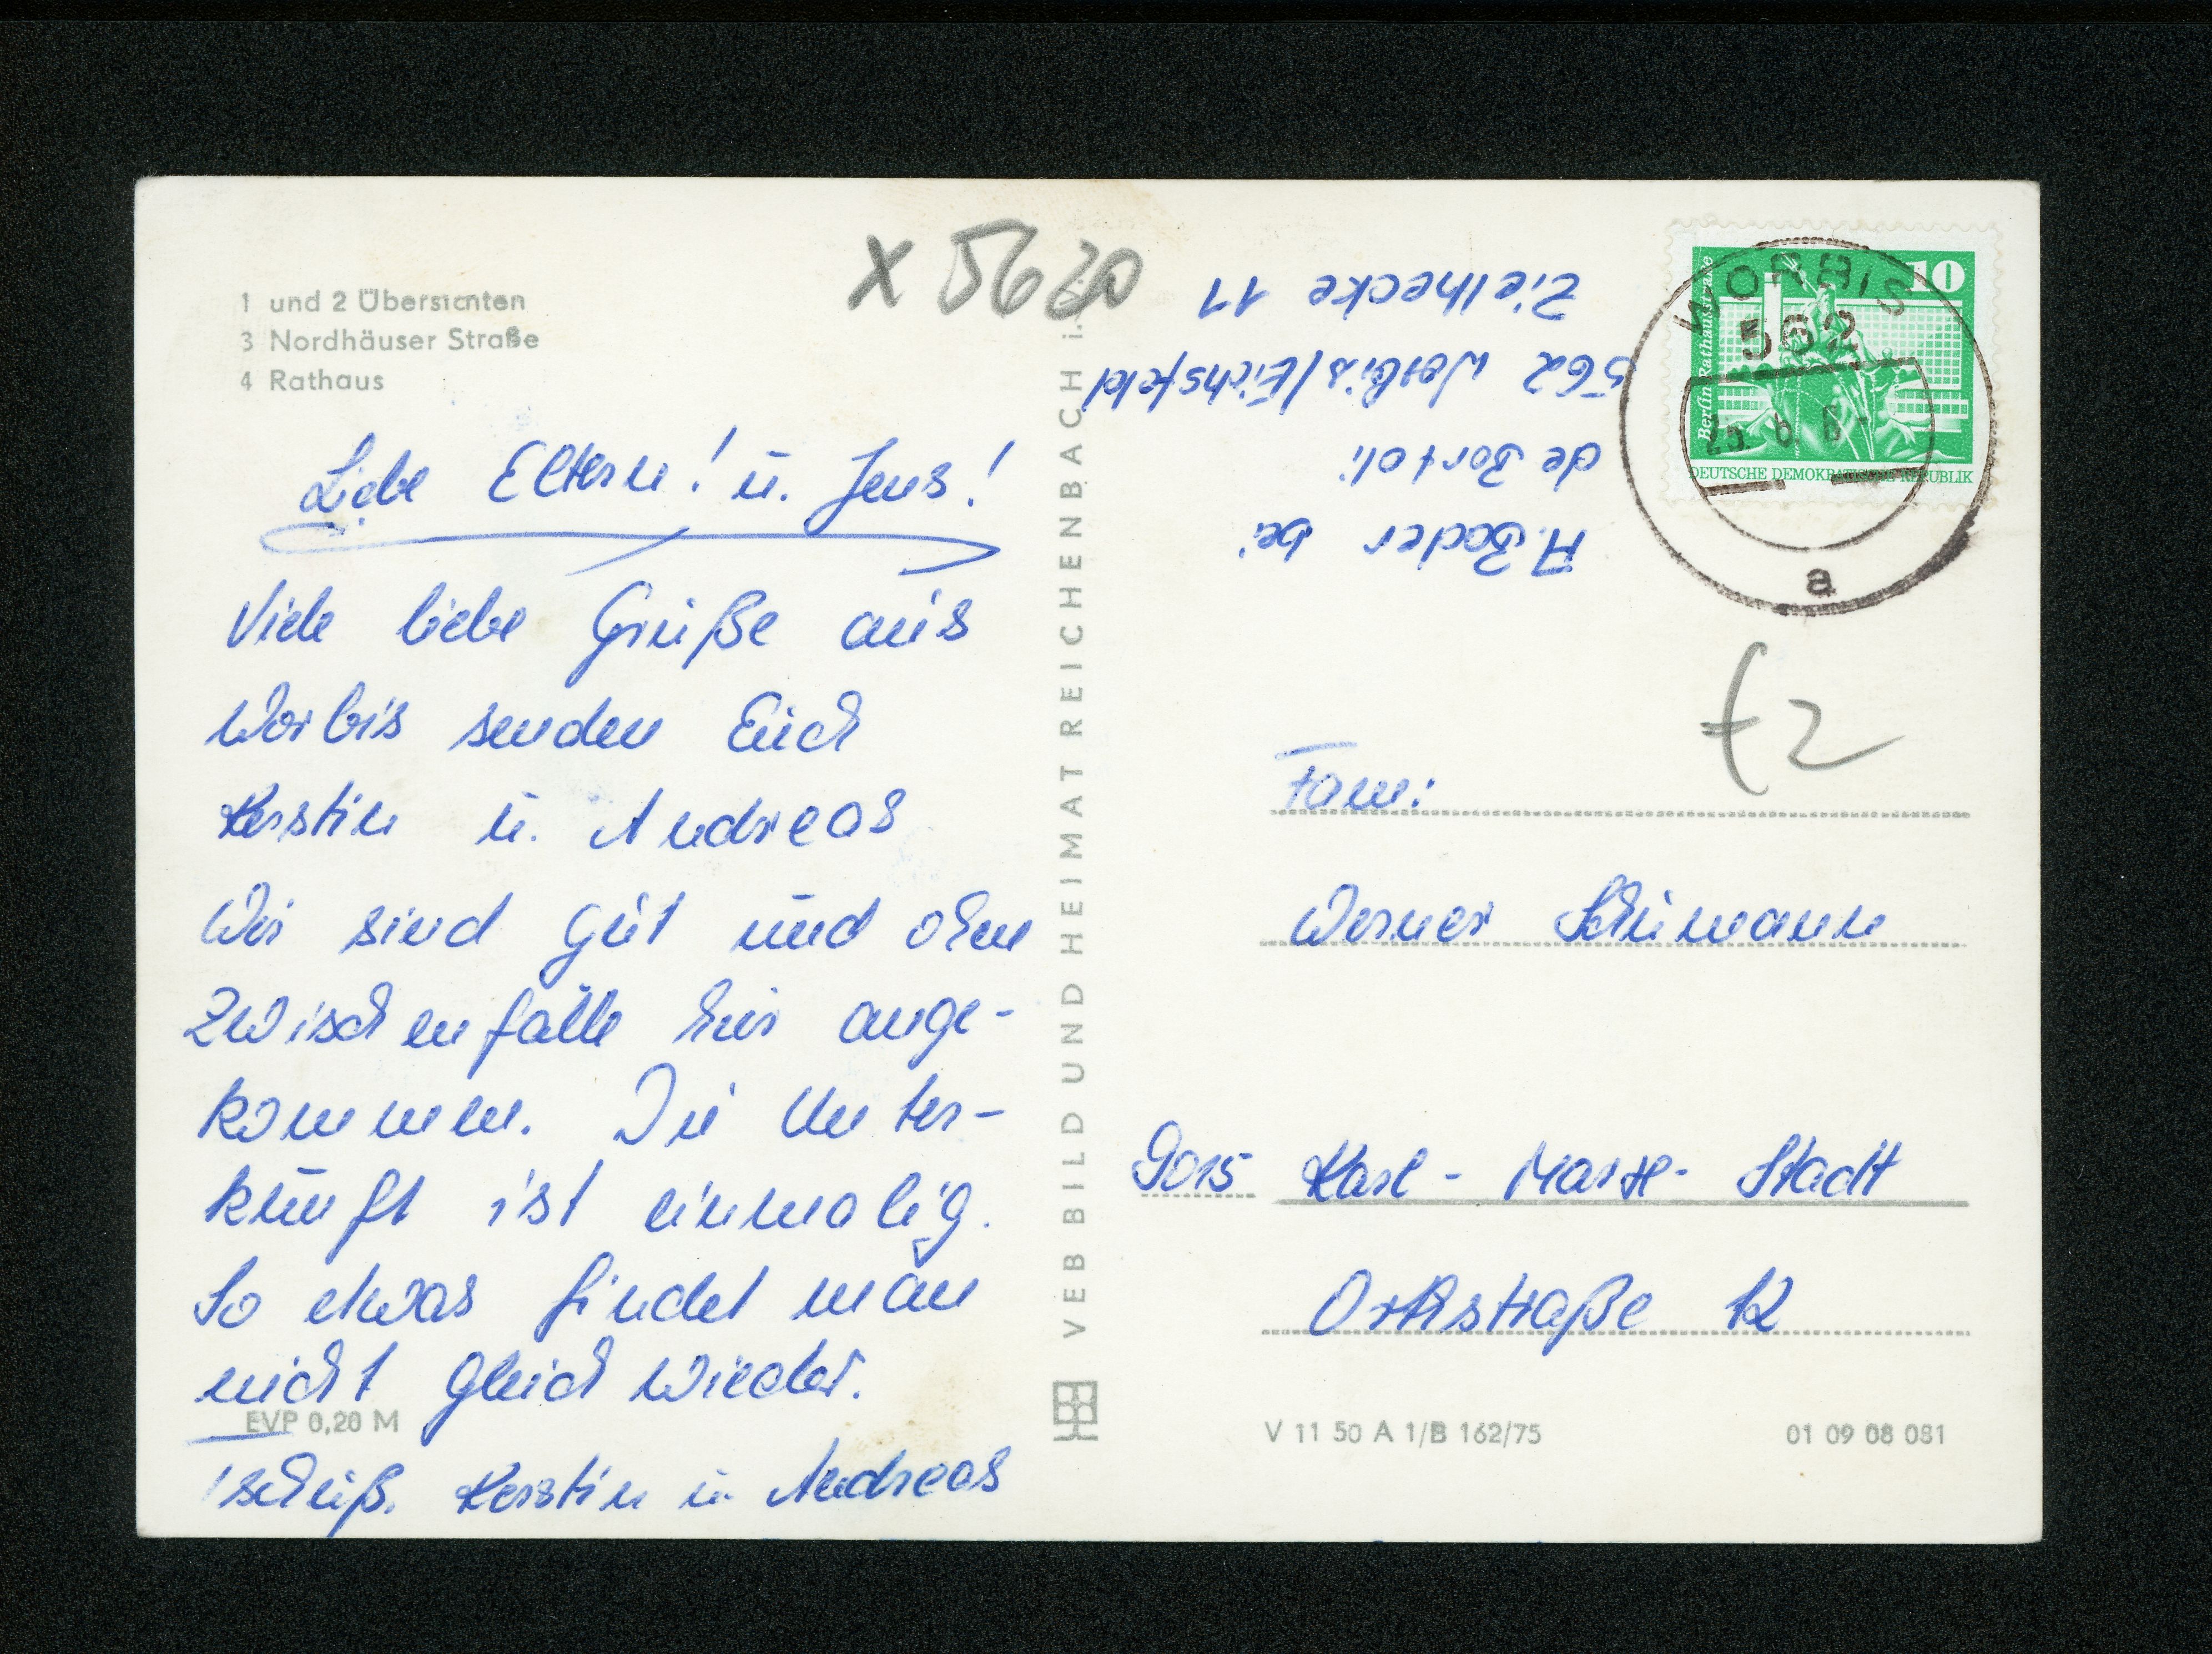 1 und 2 Übersichten
3 Nordhäuser Straße
4 Rathaus
Liebe Eltern! u. Jens!
Viele liebe Grüße aus
Worbis senden Euch
Kerstin u. Andreas
Wir sind gut und ohne
Zwischenfälle hier ange-
kommen. Die Unter-
kunft ist einmalig.
So etwas findet man
nicht gleich wieder.
EVP 0,20 M
Tschüß. Kerstin u. Andreas
X 5620
VEB BILD UND HEIMAT REICHENBACH i.
A. Bader bei
de Bortoli
562 Worbis/Eichsfeld
Zielhecke 11
10
Berlin Rathausstraße
DEUTSCHE DEMOKRATISCHE REPUBLIK
WORBIS
562
a
Fam:
Werner Schumann
9015 Karl-Marx-Stadt
Orthstraße 12
V 11 50 A 1/B 162/75
01 09 08 081